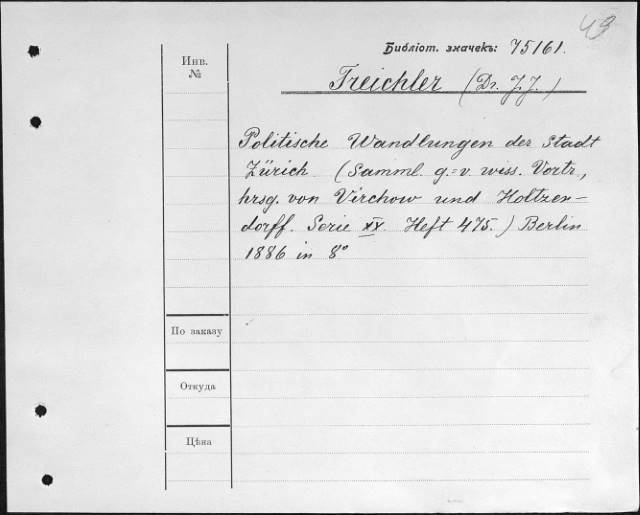 49
Библіот. значекъ: 75161.
Инв.
№
Treichler (Dr. J.J.)
Politische Wandlungen der Stadt
Zürich (Samml. g.=v. wiss. Vortr.,
hrsg. von Virchow und Holtzen-
dorff. Serie XX Heft 475.) Berlin
1886 in 8°
По заказу
Откуда
Цѣна